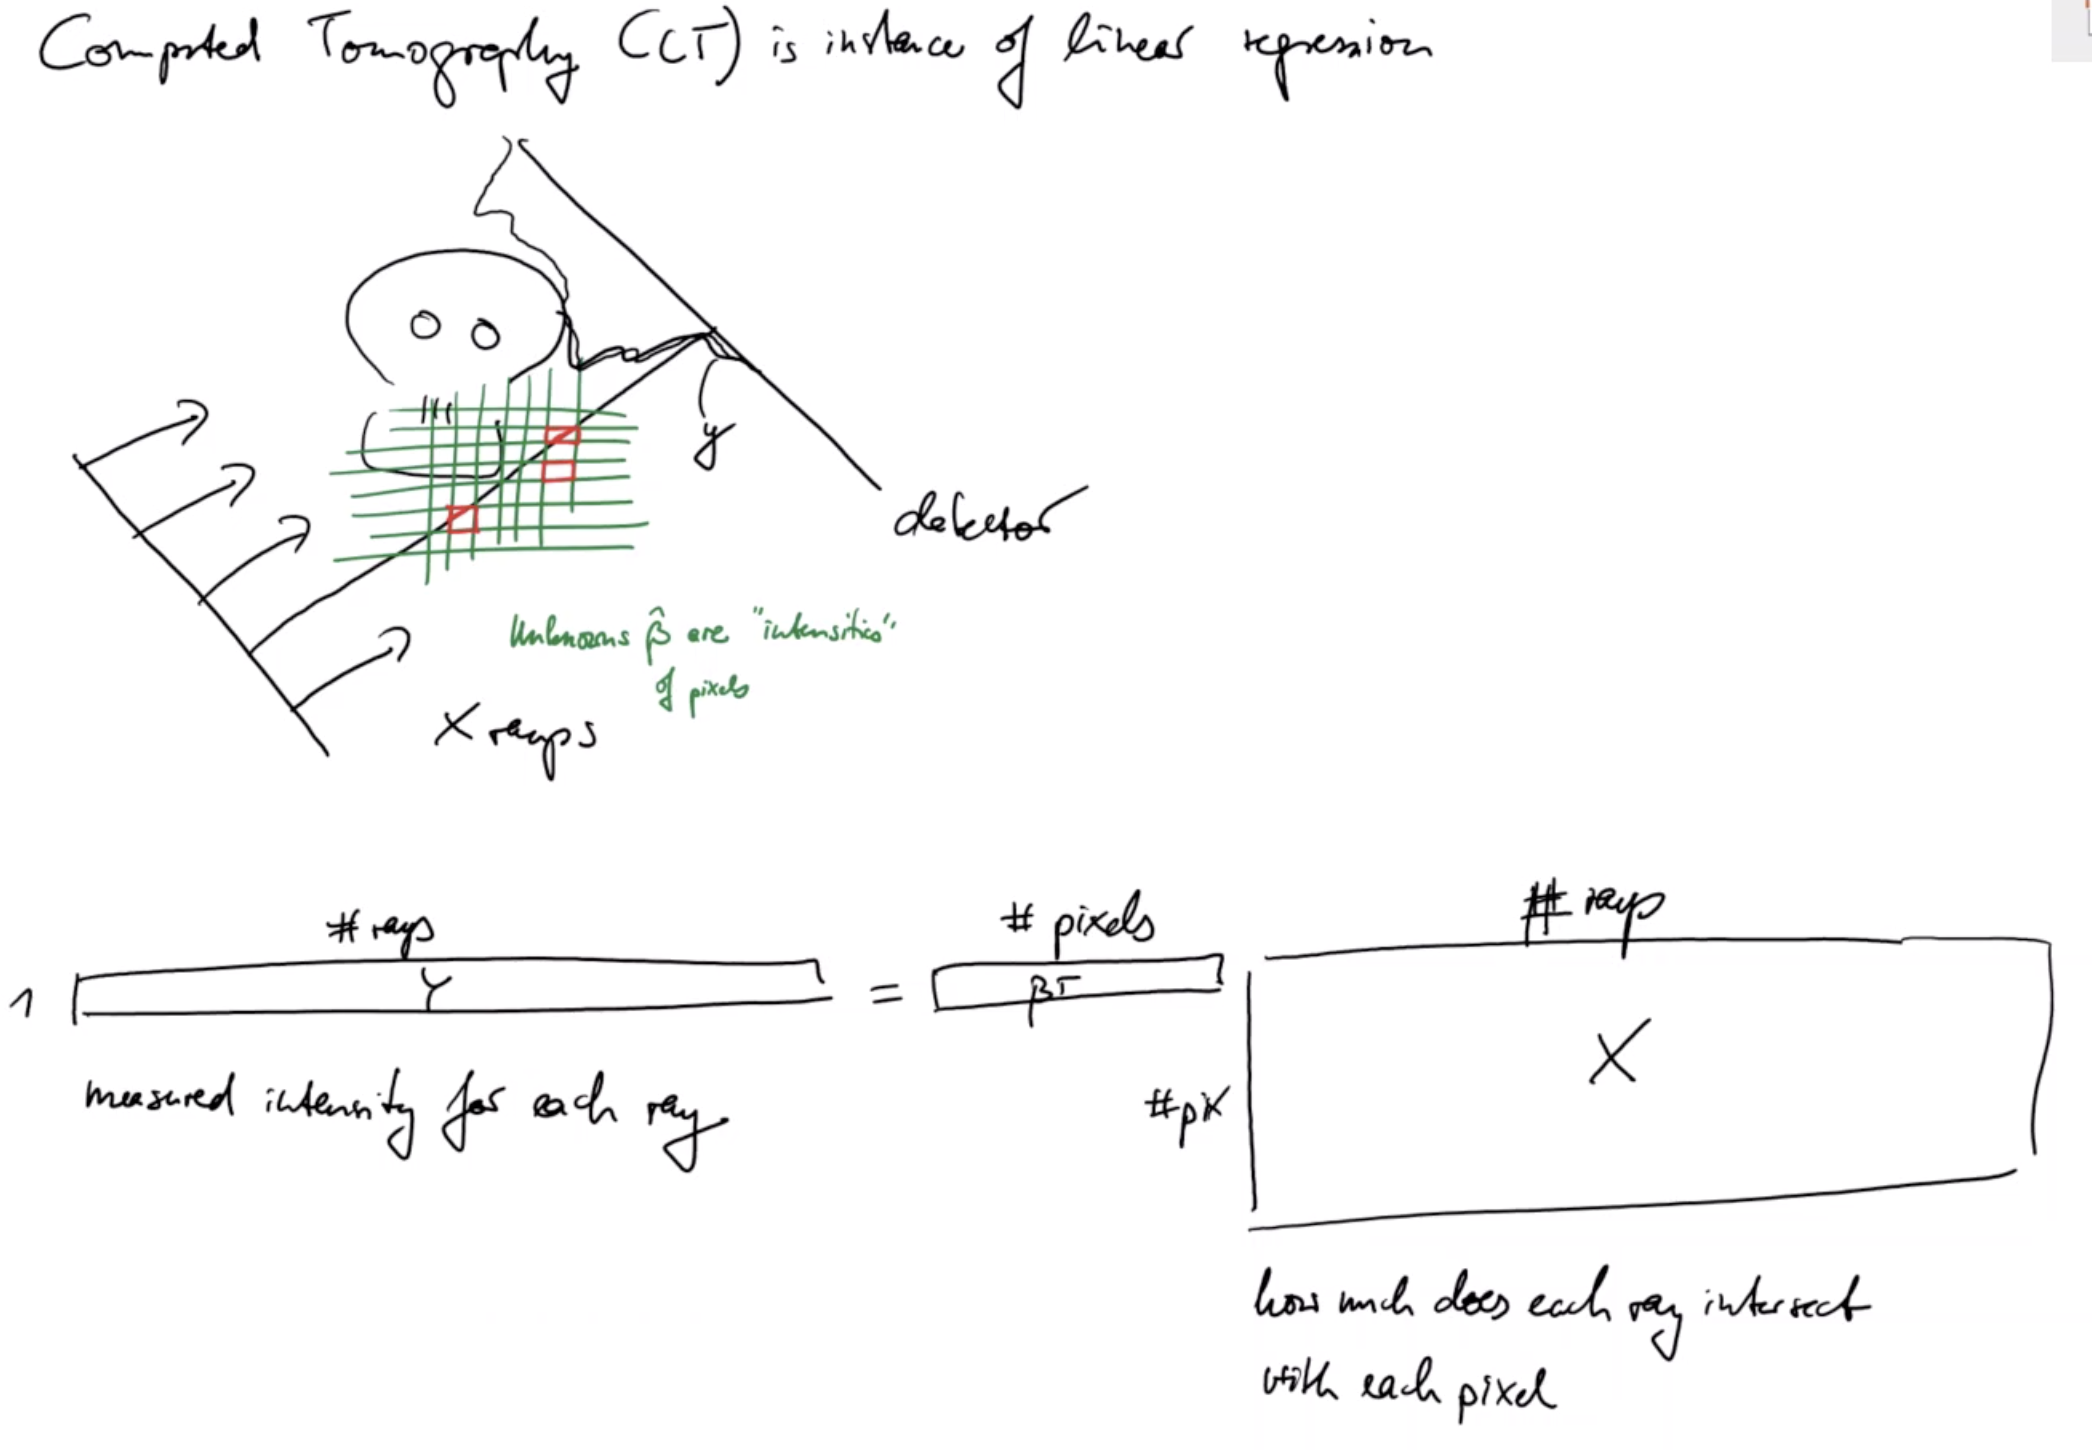 Computed Tomography (CT) is instance of linear regression
y
detector
Unknowns β̂ are "intensities"
of pixels
X rays
# rays
# pixels
# rays
1
Y
=
βT
X
#pix
measured intensity for each ray
how much does each ray intersect
with each pixel